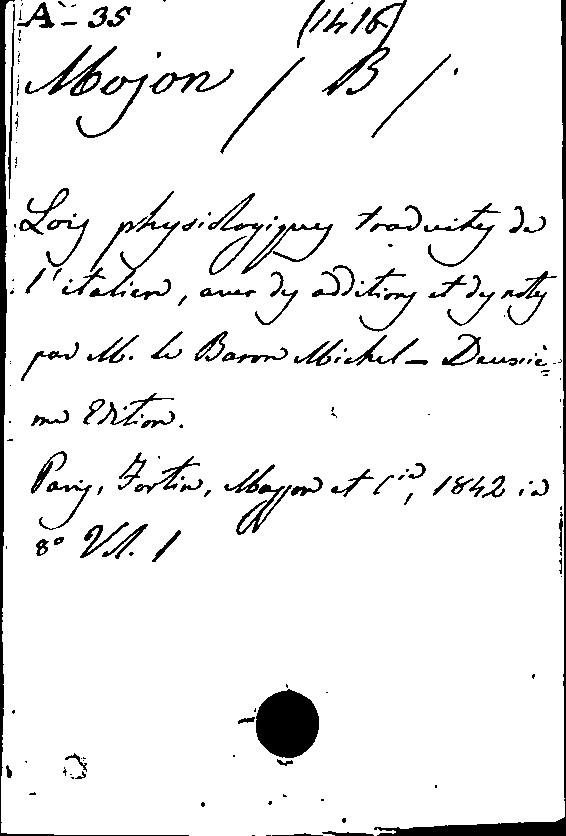 A - 35 (1416)
Mojon (B).
Lois physiologiques traduites de
l'italien, avec des additions et des notes
par M. le Baron Michel - Deuxiè=
me Edition.
Paris, Fortin, Masson et Cie, 1842 in
8º Vol. 1